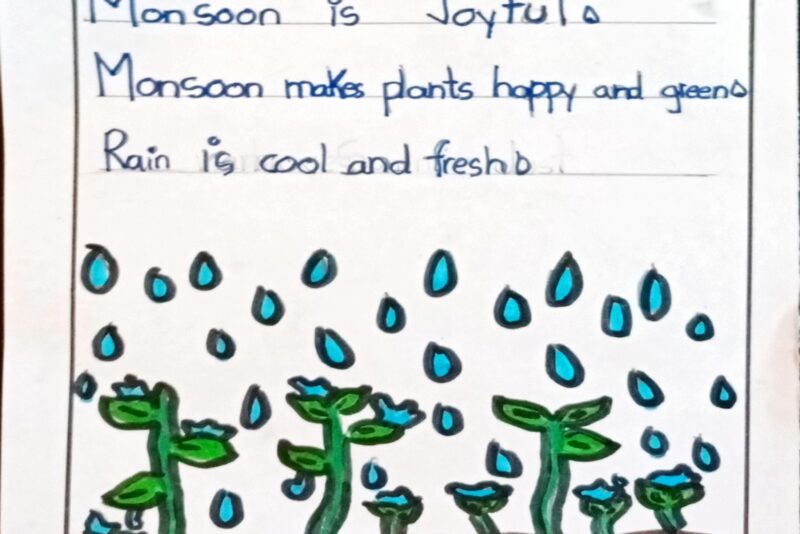 Monsoon is Joyful.
Monsoon makes plants happy and green.
Rain is cool and fresh.